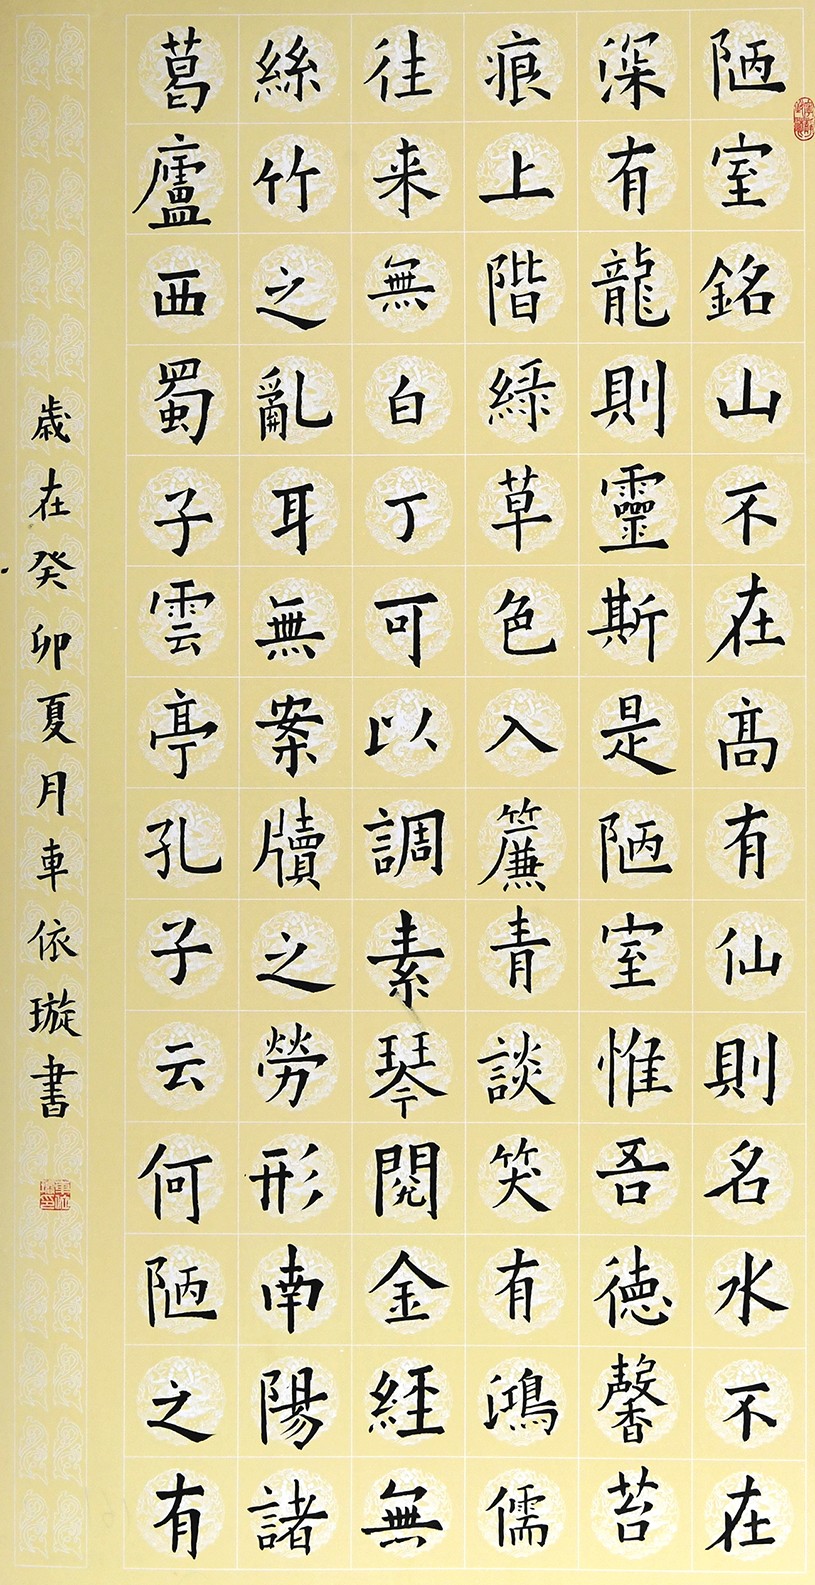 陋室銘山不在高有仙則名水不在
深有龍則靈斯是陋室惟吾德馨苔
痕上階緑草色入簾青談笑有鴻儒
往来無白丁可以調素琴閱金經無
絲竹之亂耳無案牘之勞形南陽諸
葛廬西蜀子雲亭孔子云何陋之有
歲在癸卯夏月車依璇書